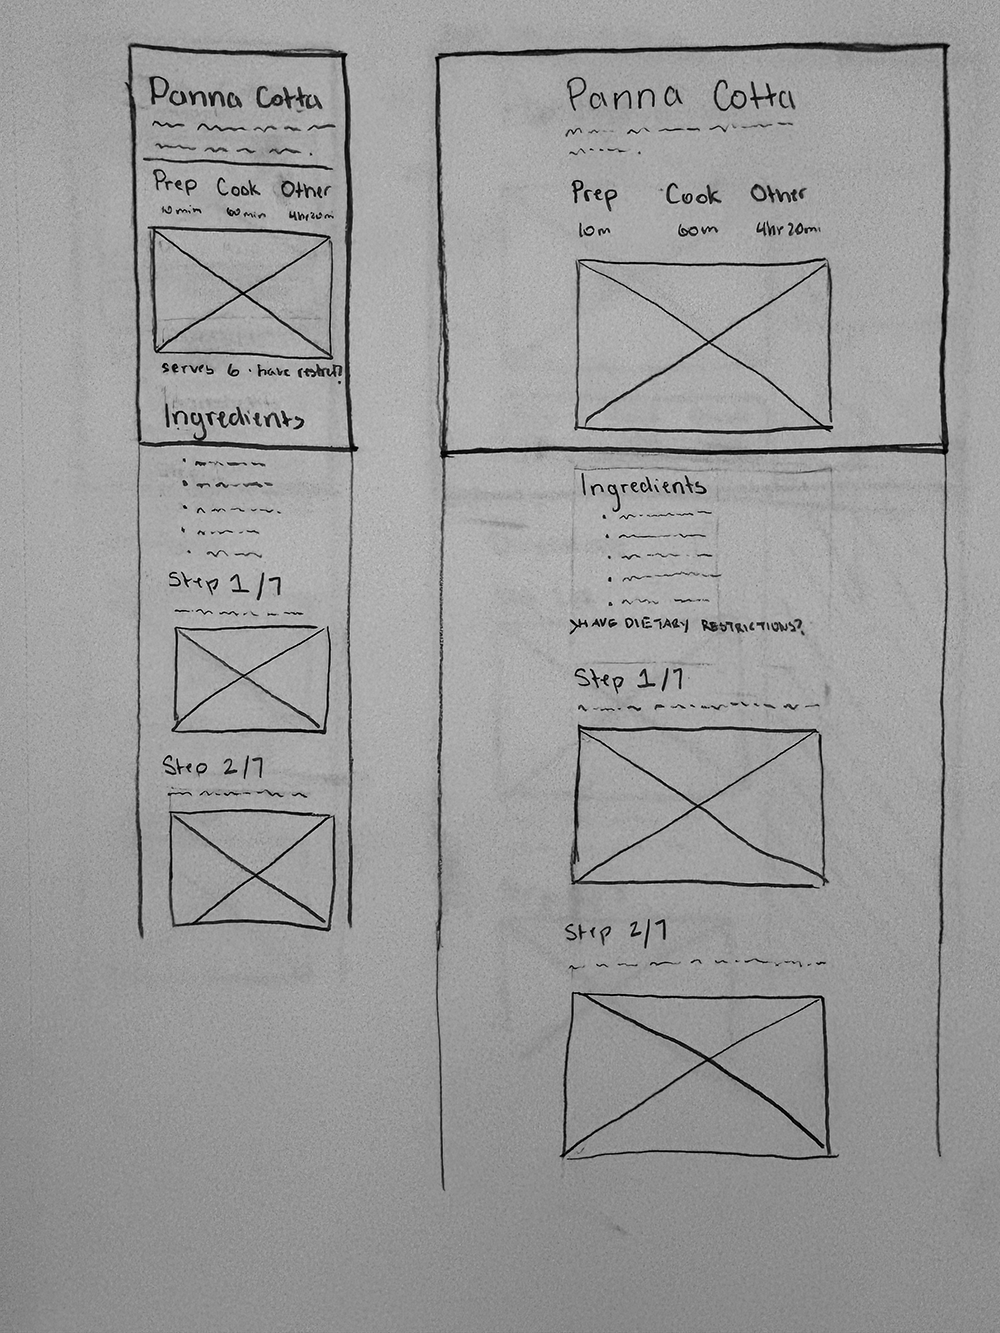 Panna Cotta
Prep Cook Other
10min 60min 4hr20m
serves 6 · have restrict?
Ingredients
Step 1/7
Step 2/7
Panna Cotta
Prep Cook Other
10m 60m 4hr20m
Ingredients
>HAVE DIETARY RESTRICTIONS?
Step 1/7
Step 2/7